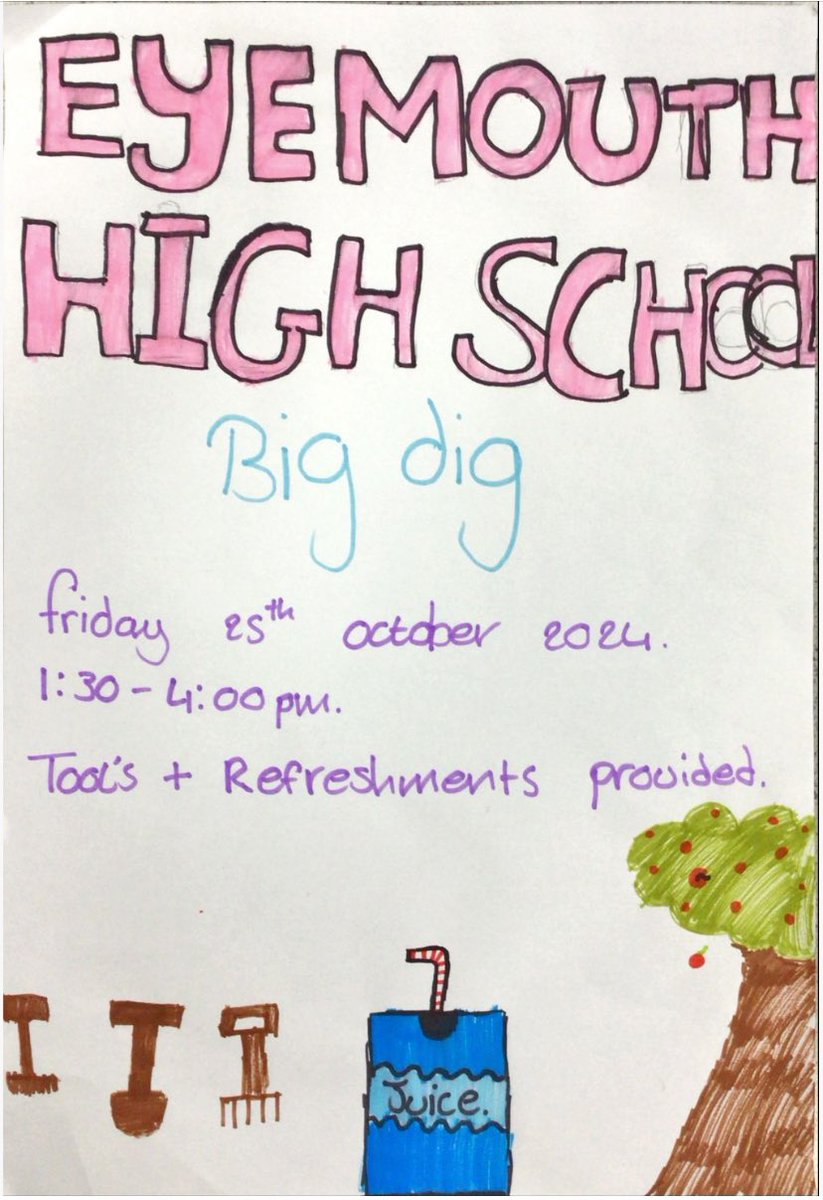 EYEMOUTH
HIGH SCHOOL
Big dig
friday 25th october 2024.
1:30 - 4:00pm.
Tool's + Refreshments provided.
Juice.